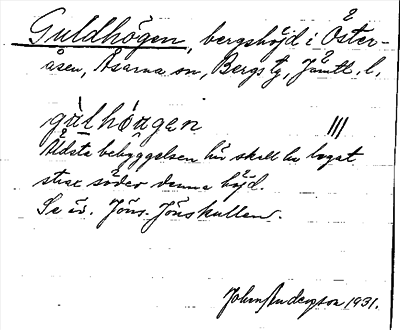 Guldhögen, bergshöjd i Öster-
åsen, Åsarna sn, Bergs tg, Jämtl. l.
gùlhö̀gen
Äldsta bebyggelsen här skall ha legat
strax söder denna höjd.
Se äv. Jöns-Jönskullen.
John Anderson 1931.